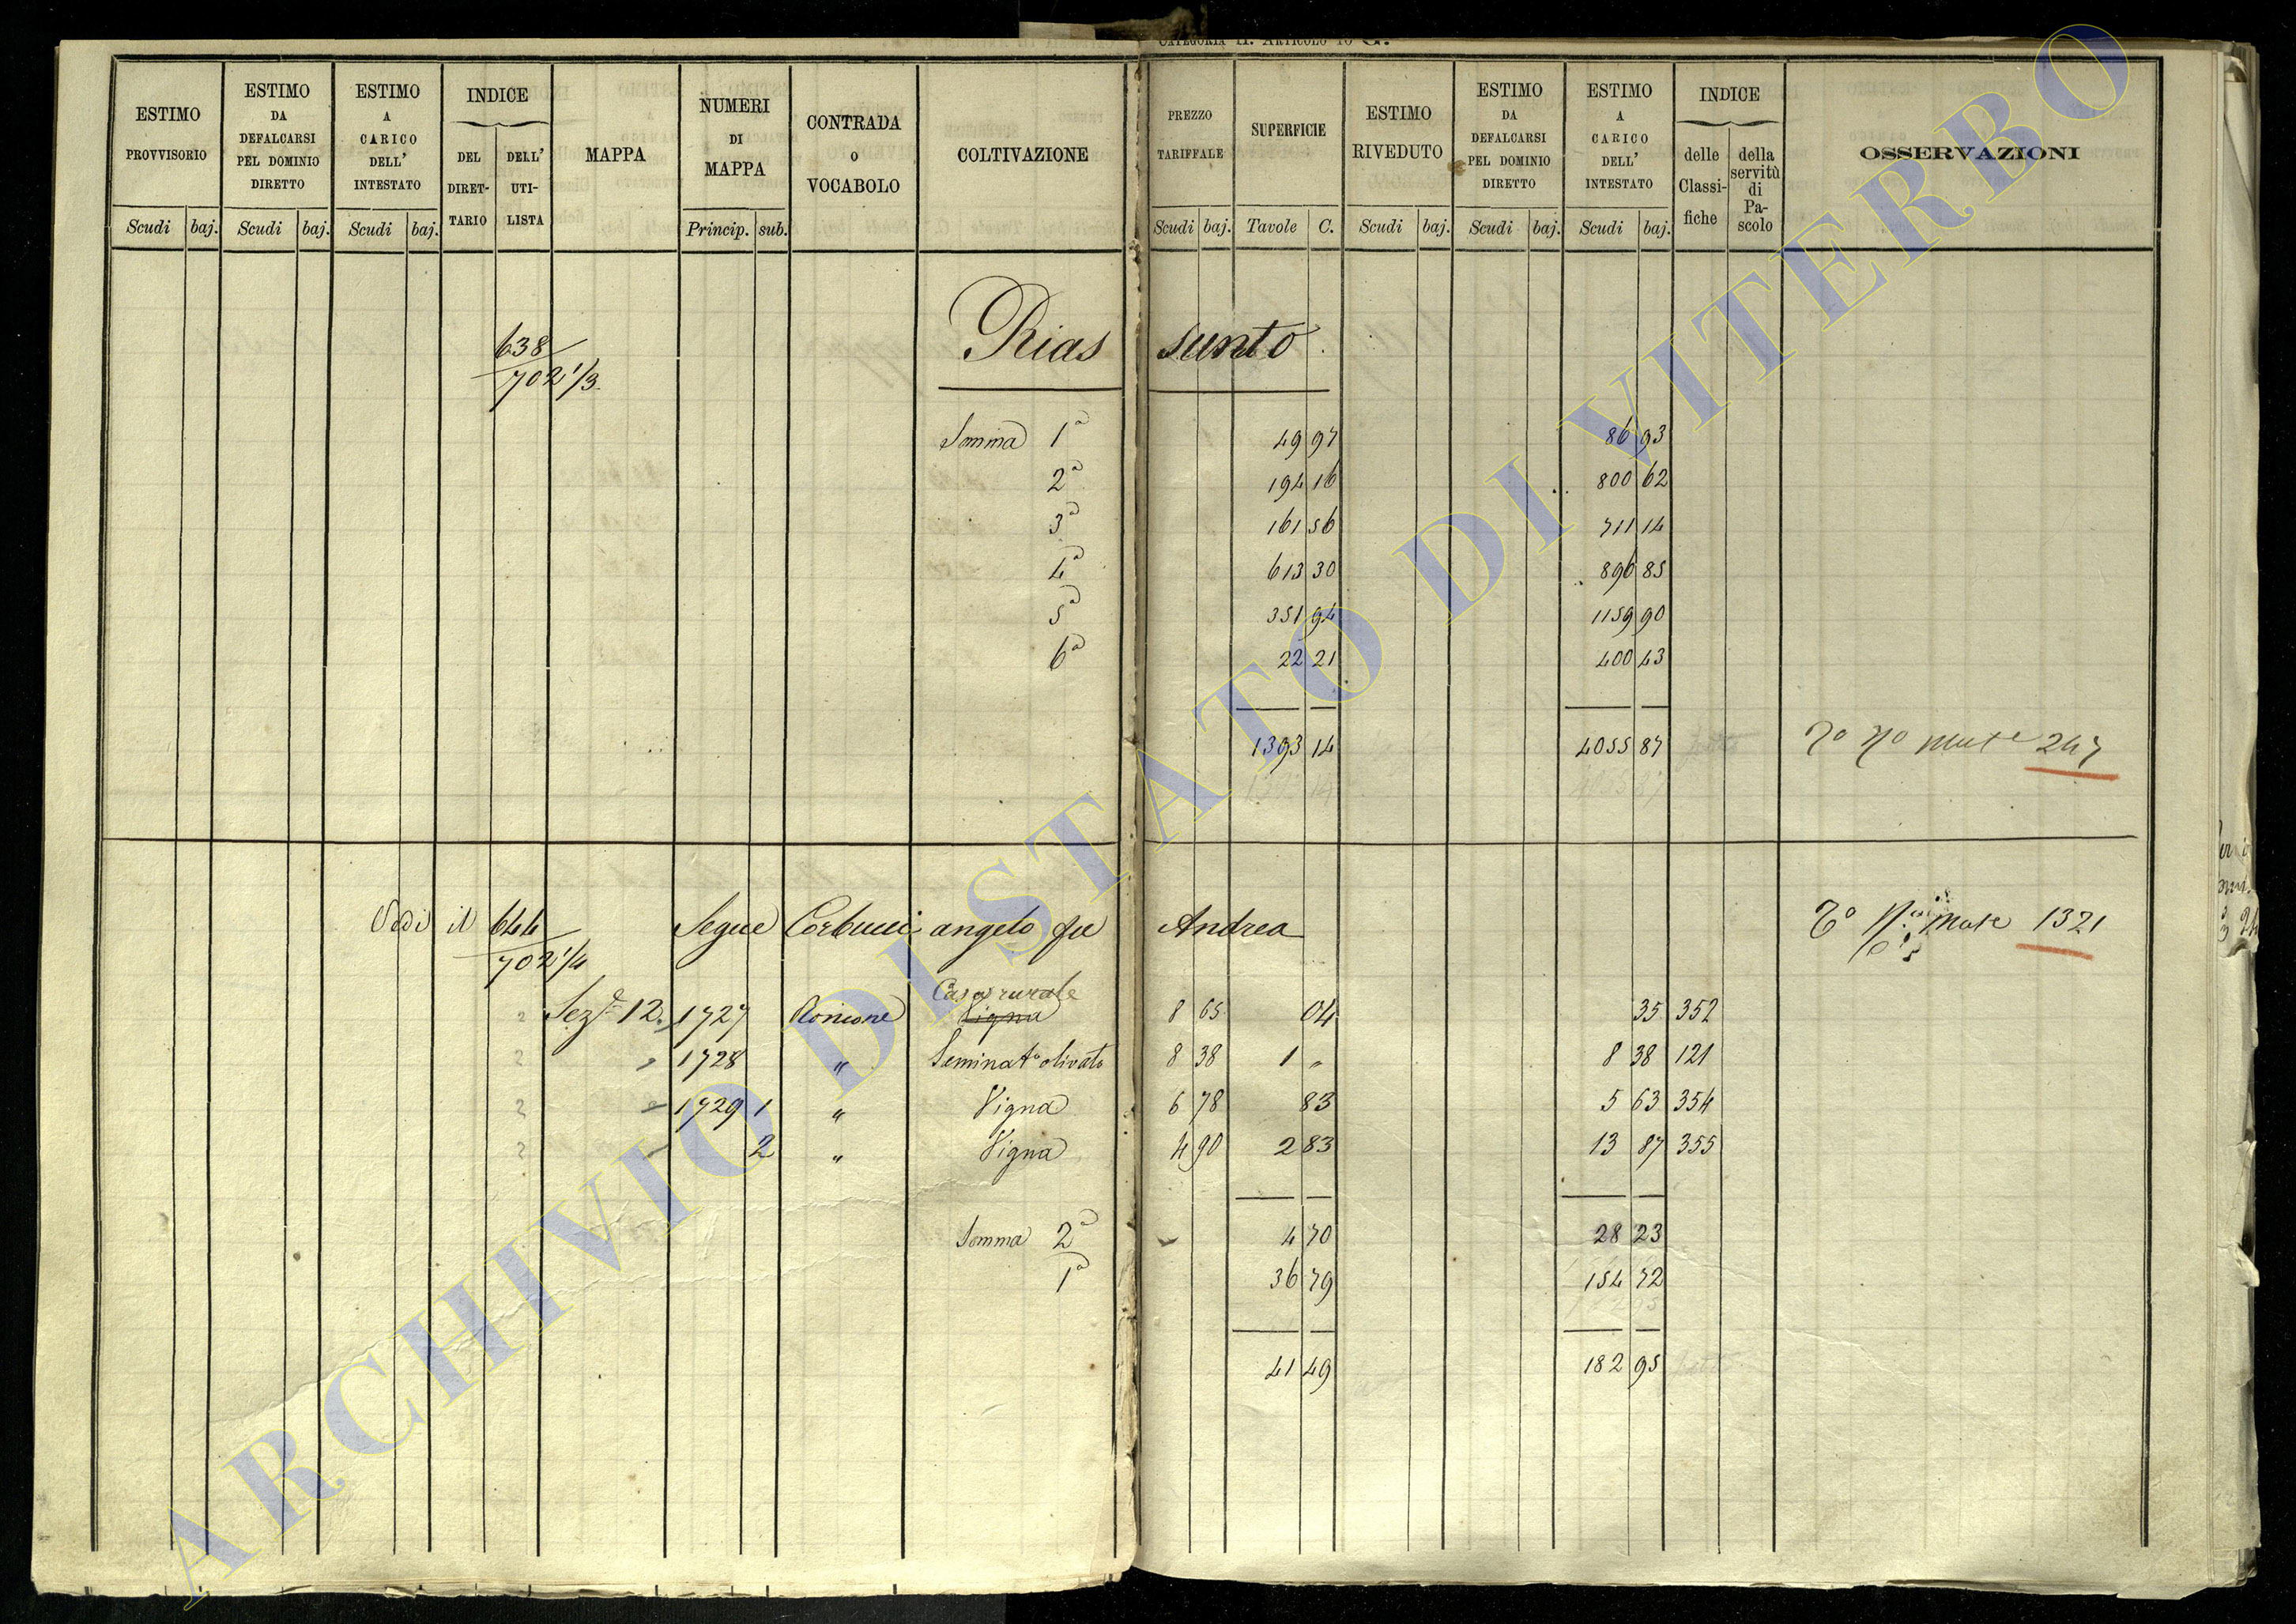 CATEGORIA II. ARTICOLO 10 G.
ESTIMO PROVVISORIO Scudi baj.
ESTIMO DA DEFALCARSI PEL DOMINIO DIRETTO Scudi baj.
ESTIMO A CARICO DELL' INTESTATO Scudi baj.
INDICE DEL DIRET-TARIO DELL' UTI-LISTA
MAPPA
NUMERI DI MAPPA Princip. sub.
CONTRADA O VOCABOLO
COLTIVAZIONE
PREZZO TARIFFALE Scudi baj.
SUPERFICIE Tavole C.
ESTIMO RIVEDUTO Scudi baj.
ESTIMO DA DEFALCARSI PEL DOMINIO DIRETTO Scudi baj.
ESTIMO A CARICO DELL' INTESTATO Scudi baj.
INDICE delle Classi-fiche della servitù di Pa-scolo
OSSERVAZIONI
638 Riassunto
702 1/3
Somma 1ª 49 97 86 93
2ª 194 16 800 62
3ª 161 56 711 14
4ª 613 30 896 85
5ª 351 94 1159 90
6ª 22 21 400 43
1393 14 4055 87 247
1393 14 4055 87
Vedi il 644 Segue Corbucci angelo fu Andrea 1321
702 1/4
Casa rurale
Sez.e 12. 1727 Vigna 8 65 04 35 352
1728 " Seminat.o olivato 8 38 1 " 8 38 121
1729 1 " Vigna 6 78 83 5 63 354
2 " Vigna 4 90 2 83 13 87 355
Somma 2ª 4 70 28 23
1ª 36 79 154 72
41 49 182 95
ARCHIVIO DI STATO DI VITERBO